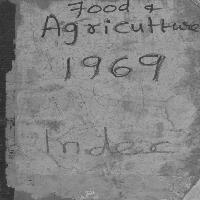 Food &
Agriculture
1969
Index